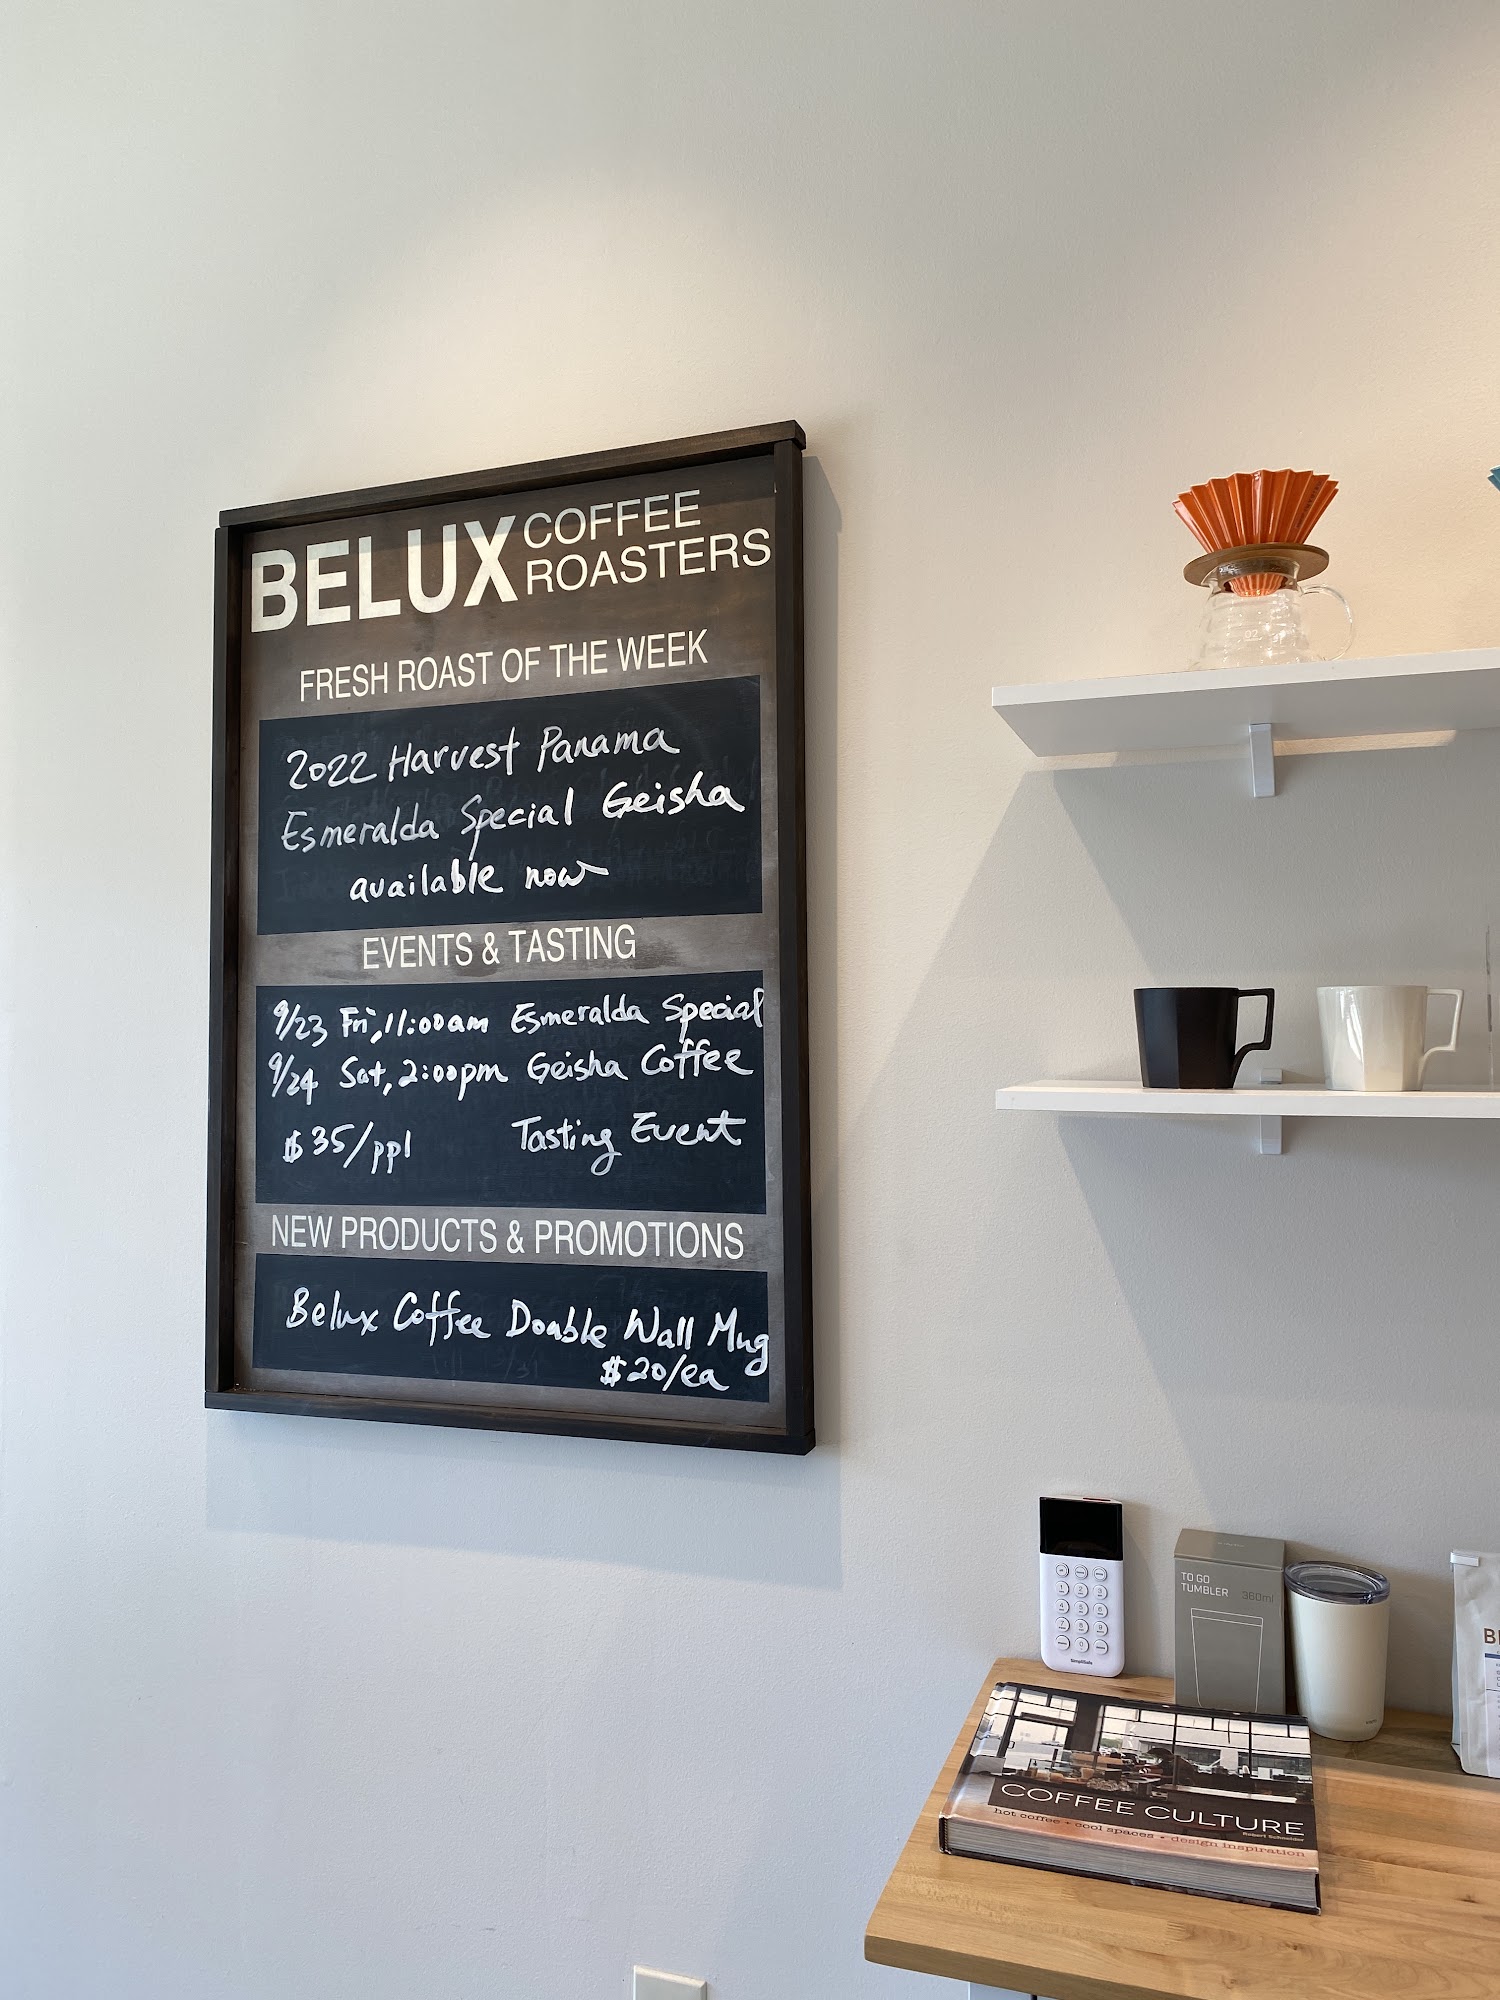 BELUX COFFEE
ROASTERS
FRESH ROAST OF THE WEEK
2022 Harvest Panama
Esmeralda Special Geisha
available now
EVENTS & TASTING
9/23 Fri, 11:00am Esmeralda Special
9/24 Sat, 2:00pm Geisha Coffee
$35/ppl Tasting Event
NEW PRODUCTS & PROMOTIONS
Belux Coffee Double Wall Mug
$20/ea
02
TO GO
TUMBLER 360ml
1 2 3
4 5 6
7 8 9
0
SimpliSafe
COFFEE CULTURE
Robert Schneider
hot coffee + cool spaces + design inspiration